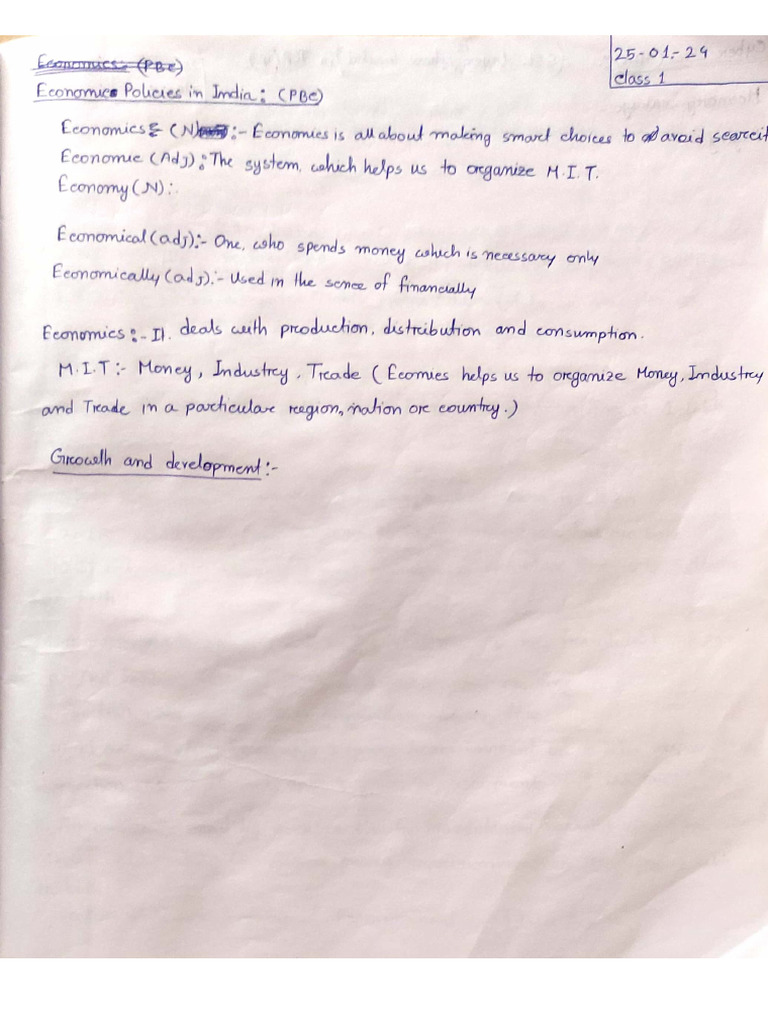 Economics:- (PBC)
25-01-24
class 1
Economics Policies in India: (PBC)
Economics: (N) :- Economics is all about making smart choices to avoid scarcit
Economic (Adj): The system, which helps us to organize M.I.T.
Economy (N):
Economical (adj):- One, who spends money which is necessary only
Economically (adj):- Used in the sence of financially
Economics:- It deals with production, distribution and consumption.
M.I.T:- Money, Industry, Trade ( Ecomies helps us to organize Money, Industry
and Trade in a particular region, nation or country.)
Growth and development:-